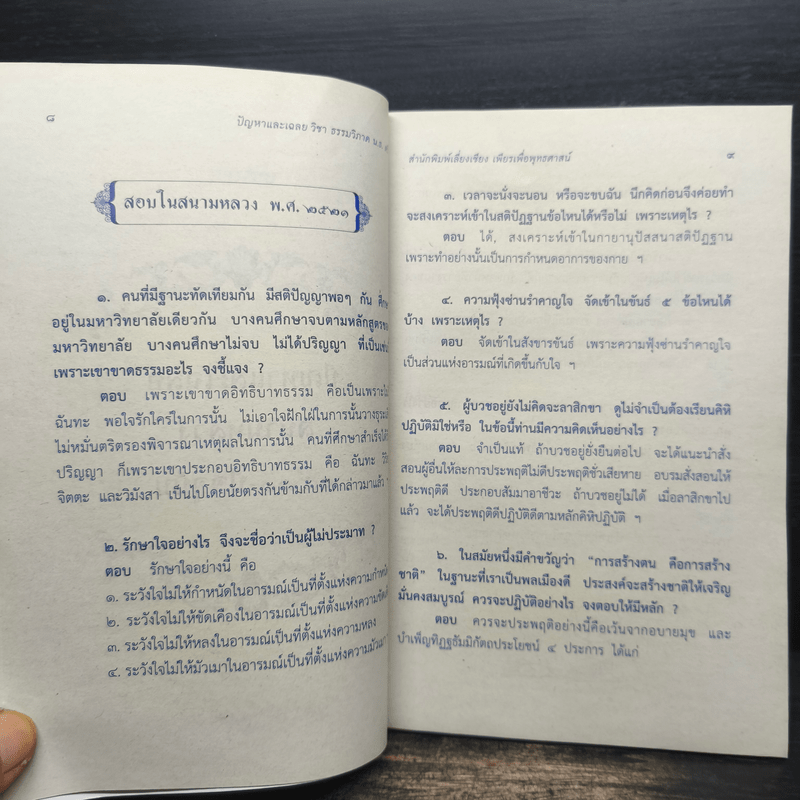 ๘
ปัญหาและเฉลย วิชา ธรรมวิภาค น.ธ.
สอบในสนามหลวง พ.ศ. ๒๕๒๑
๑. คนที่มีฐานะทัดเทียมกัน มีสติปัญญาพอๆ กัน
อยู่ในมหาวิทยาลัยเดียวกัน บางคนศึกษาจบตามหลักสูตรของ
มหาวิทยาลัย บางคนศึกษาไม่จบ ไม่ได้ปริญญา ที่เป็นเช่น
เพราะเขาขาดธรรมอะไร จงชี้แจง ?
ตอบ เพราะเขาขาดอิทธิบาทธรรม คือเป็นเพราะไม่
ฉันทะ พอใจรักใคร่ในการนั้น ไม่เอาใจฝักใฝ่ในการนั้นวางธุระ
ไม่หมั่นตริตรองพิจารณาเหตุผลในการนั้น คนที่ศึกษาสำเร็จได้
ปริญญา ก็เพราะเขาประกอบอิทธิบาทธรรม คือ ฉันทะ
จิตตะ และวิมังสา เป็นไปโดยนัยตรงกันข้ามกับที่ได้กล่าวมาแล้ว ฯ
๒. รักษาใจอย่างไร จึงจะชื่อว่าเป็นผู้ไม่ประมาท ?
ตอบ รักษาใจอย่างนี้ คือ
๑. ระวังใจไม่ให้กำหนัดในอารมณ์เป็นที่ตั้งแห่งความกำหนัด
๒. ระวังใจไม่ให้ขัดเคืองในอารมณ์เป็นที่ตั้งแห่งความขัดเคือง
๓. ระวังใจไม่ให้หลงในอารมณ์เป็นที่ตั้งแห่งความหลง
๔. ระวังใจไม่ให้มัวเมาในอารมณ์เป็นที่ตั้งแห่งความมัวเมา
สำนักพิมพ์เลี่ยงเชียง เพียรเพื่อพุทธศาสน์
๙
๓. เวลาจะนั่งจะนอน หรือจะขบฉัน นึกคิดก่อนจึงค่อยทำ
จะสงเคราะห์เข้าในสติปัฏฐานข้อไหนได้หรือไม่ เพราะเหตุไร ?
ตอบ ได้, สงเคราะห์เข้าในกายานุปัสสนาสติปัฏฐาน
เพราะทำอย่างนั้นเป็นการกำหนดอาการของกาย ฯ
๔. ความฟุ้งซ่านรำคาญใจ จัดเข้าในขันธ์ ๕ ข้อไหนได้
บ้าง เพราะเหตุไร ?
ตอบ จัดเข้าในสังขารขันธ์ เพราะความฟุ้งซ่านรำคาญใจ
เป็นส่วนแห่งอารมณ์ที่เกิดขึ้นกับใจ ฯ
๕. ผู้บวชอยู่ยังไม่คิดจะลาสิกขา ดูไม่จำเป็นต้องเรียนคิหิ
ปฏิบัติมิใช่หรือ ในข้อนี้ท่านมีความคิดเห็นอย่างไร ?
ตอบ จำเป็นแท้ ถ้าบวชอยู่ยั่งยืนต่อไป จะได้แนะนำสั่ง
สอนผู้อื่นให้ละการประพฤติไม่ดีประพฤติชั่วเสียหาย อบรมสั่งสอนให้
ประพฤติดี ประกอบสัมมาอาชีวะ ถ้าบวชอยู่ไม่ได้ เมื่อลาสิกขาไป
แล้ว จะได้ประพฤติดีปฏิบัติดีตามหลักคิหิปฏิบัติ ฯ
๖. ในสมัยหนึ่งมีคำขวัญว่า “การสร้างตน คือการสร้าง
ชาติ” ในฐานะที่เราเป็นพลเมืองดี ประสงค์จะสร้างชาติให้เจริญ
มั่นคงสมบูรณ์ ควรจะปฏิบัติอย่างไร จงตอบให้มีหลัก ?
ตอบ ควรจะประพฤติอย่างนี้คือเว้นจากอบายมุข และ
บำเพ็ญทิฏฐธัมมิกัตถประโยชน์ ๔ ประการ ได้แก่